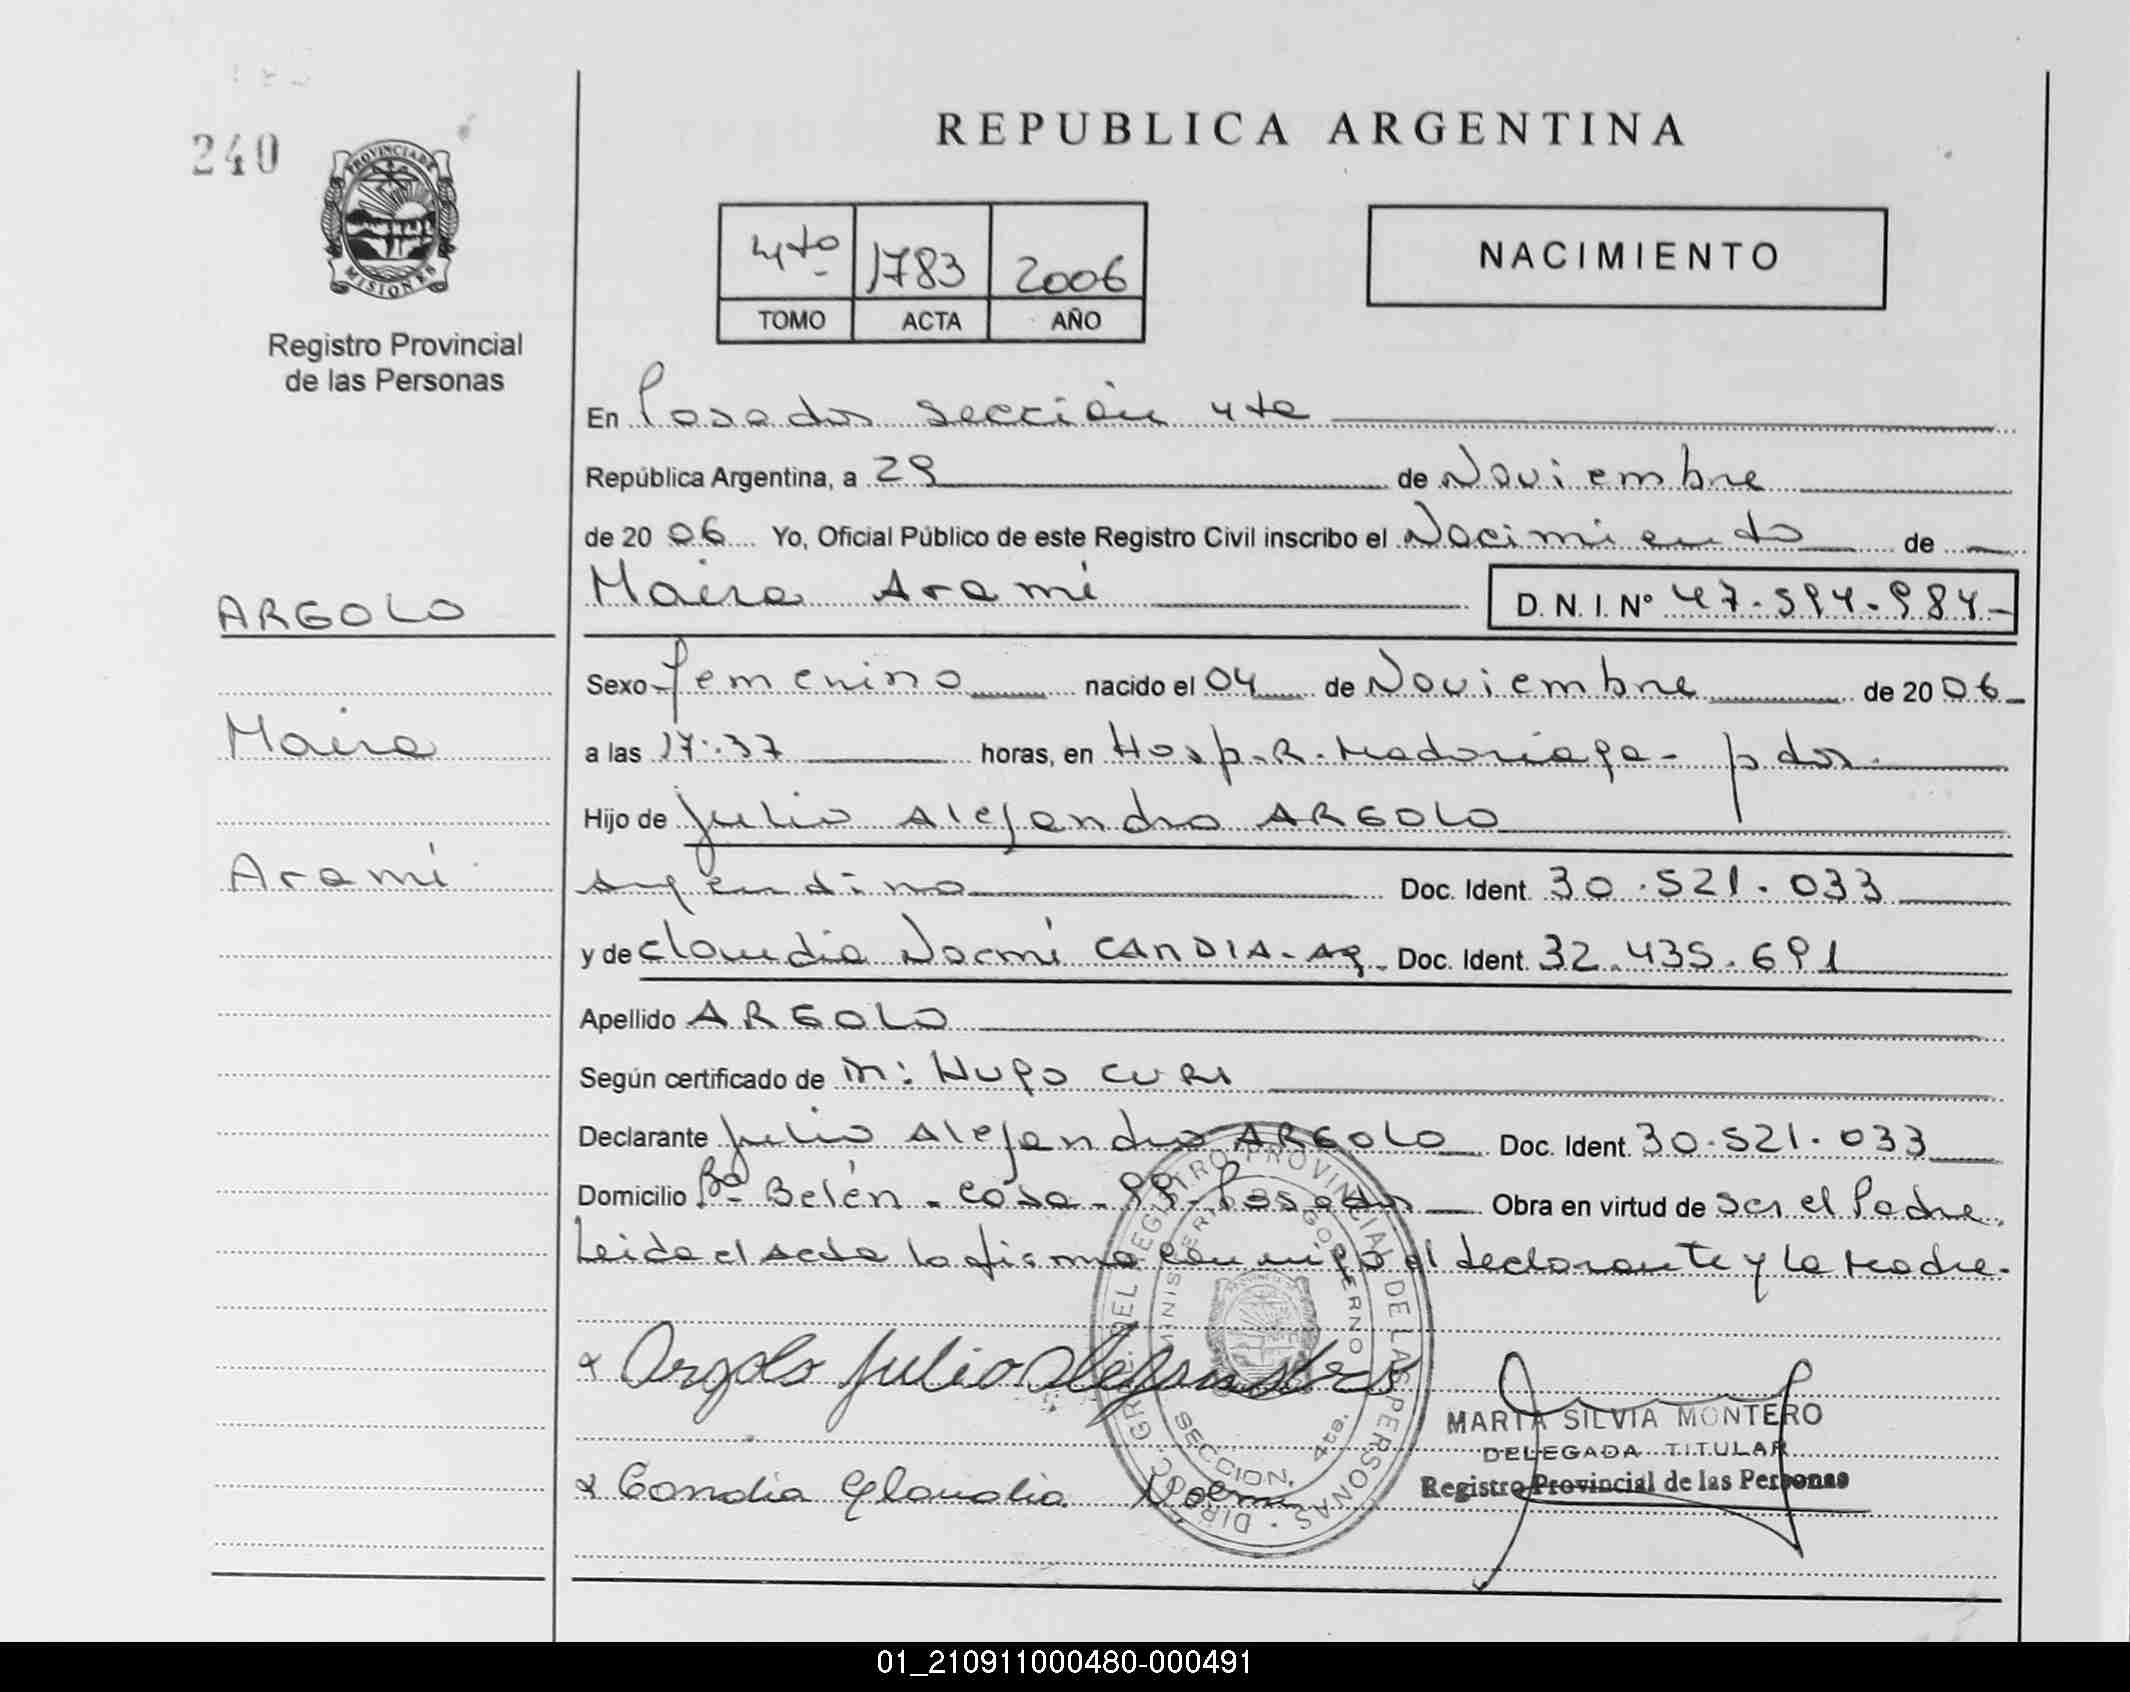 240
PROVINCIA DE
MISIONES
Registro Provincial
de las Personas
ARGOLO
Maira
Aramí
REPUBLICA ARGENTINA
4to 1783 2006
TOMO ACTA AÑO
NACIMIENTO
En Posadas sección 4ta
República Argentina, a 29 de Noviembre
de 2006 Yo, Oficial Público de este Registro Civil inscribo el Nacimiento de
Maira Aramí D. N. I. Nº 47.594.984-
Sexo femenino nacido el 04 de Noviembre de 2006
a las 17:37 horas, en Hosp. R. Madariaga - pdas.
Hijo de Julio Alejandro ARGOLO
Argentino Doc. Ident. 30.521.033
y de Claudia Noemí CANDIA - Ag. Doc. Ident. 32.435.691
Apellido ARGOLO
Según certificado de m: Hugo CURI
Declarante Julio Alejandro ARGOLO Doc. Ident. 30.521.033
Domicilio Bº Belén - casa - 99 - Posadas Obra en virtud de ser el Padre.
Leida el acta la firma conmigo el declarante y la Madre.
Argolo Julio Alejandro
Candia Claudia Noemi
DIRECC. GRAL. DEL REGISTRO PROVINCIAL DE LAS PERSONAS
MINISTERIO DE GOBIERNO
SECCION. 4ta.
MARIA SILVIA MONTERO
DELEGADA TITULAR
Registro Provincial de las Personas
01_210911000480-000491